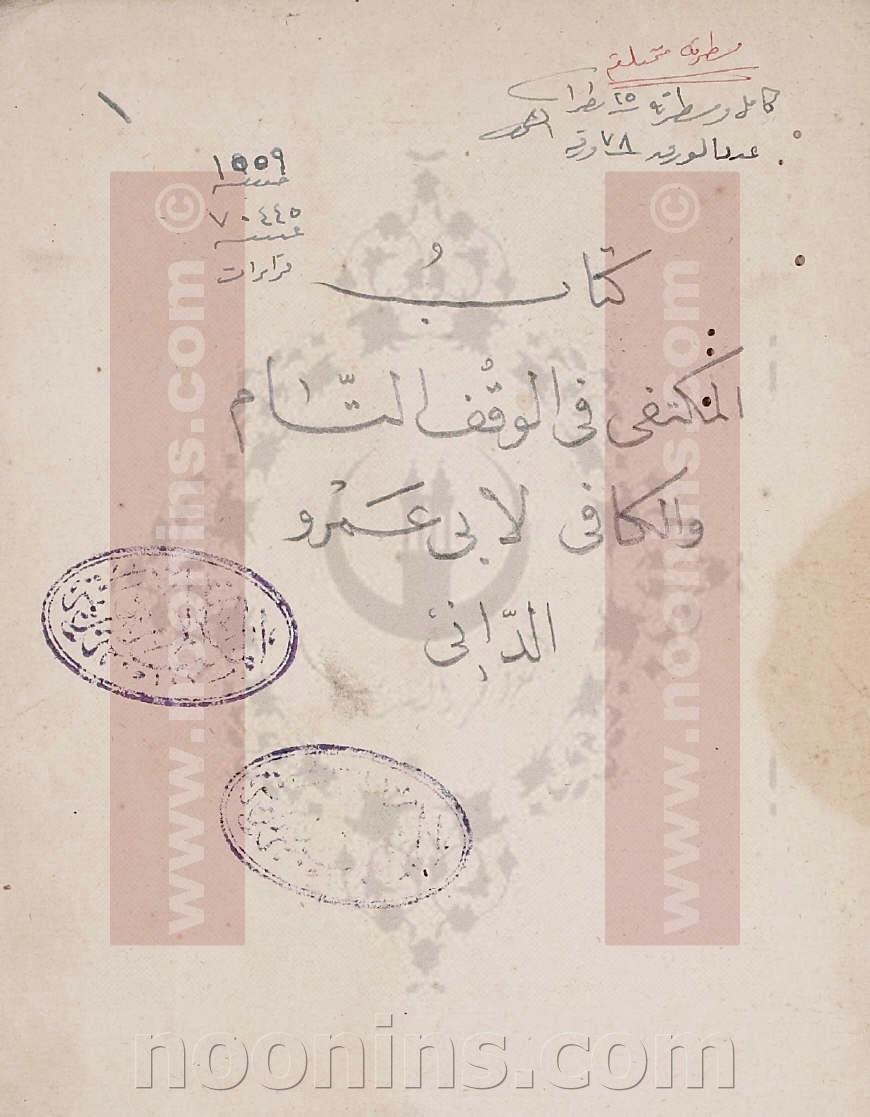 مسطرته مختلفة
كامل ومسطرته ٢٥ سطرا
عدد الورق ٧٨ ورقة
١
١٥٥٩
خصوصية
٧٠٤٤٥
عمومية
قراءات
كتابُ
المكتفى فى الوقْف التَّام
والكافى لابى عَمْرو
الدَّانى
www.noonins.com ©
www.noonins.com ©
noonins.com